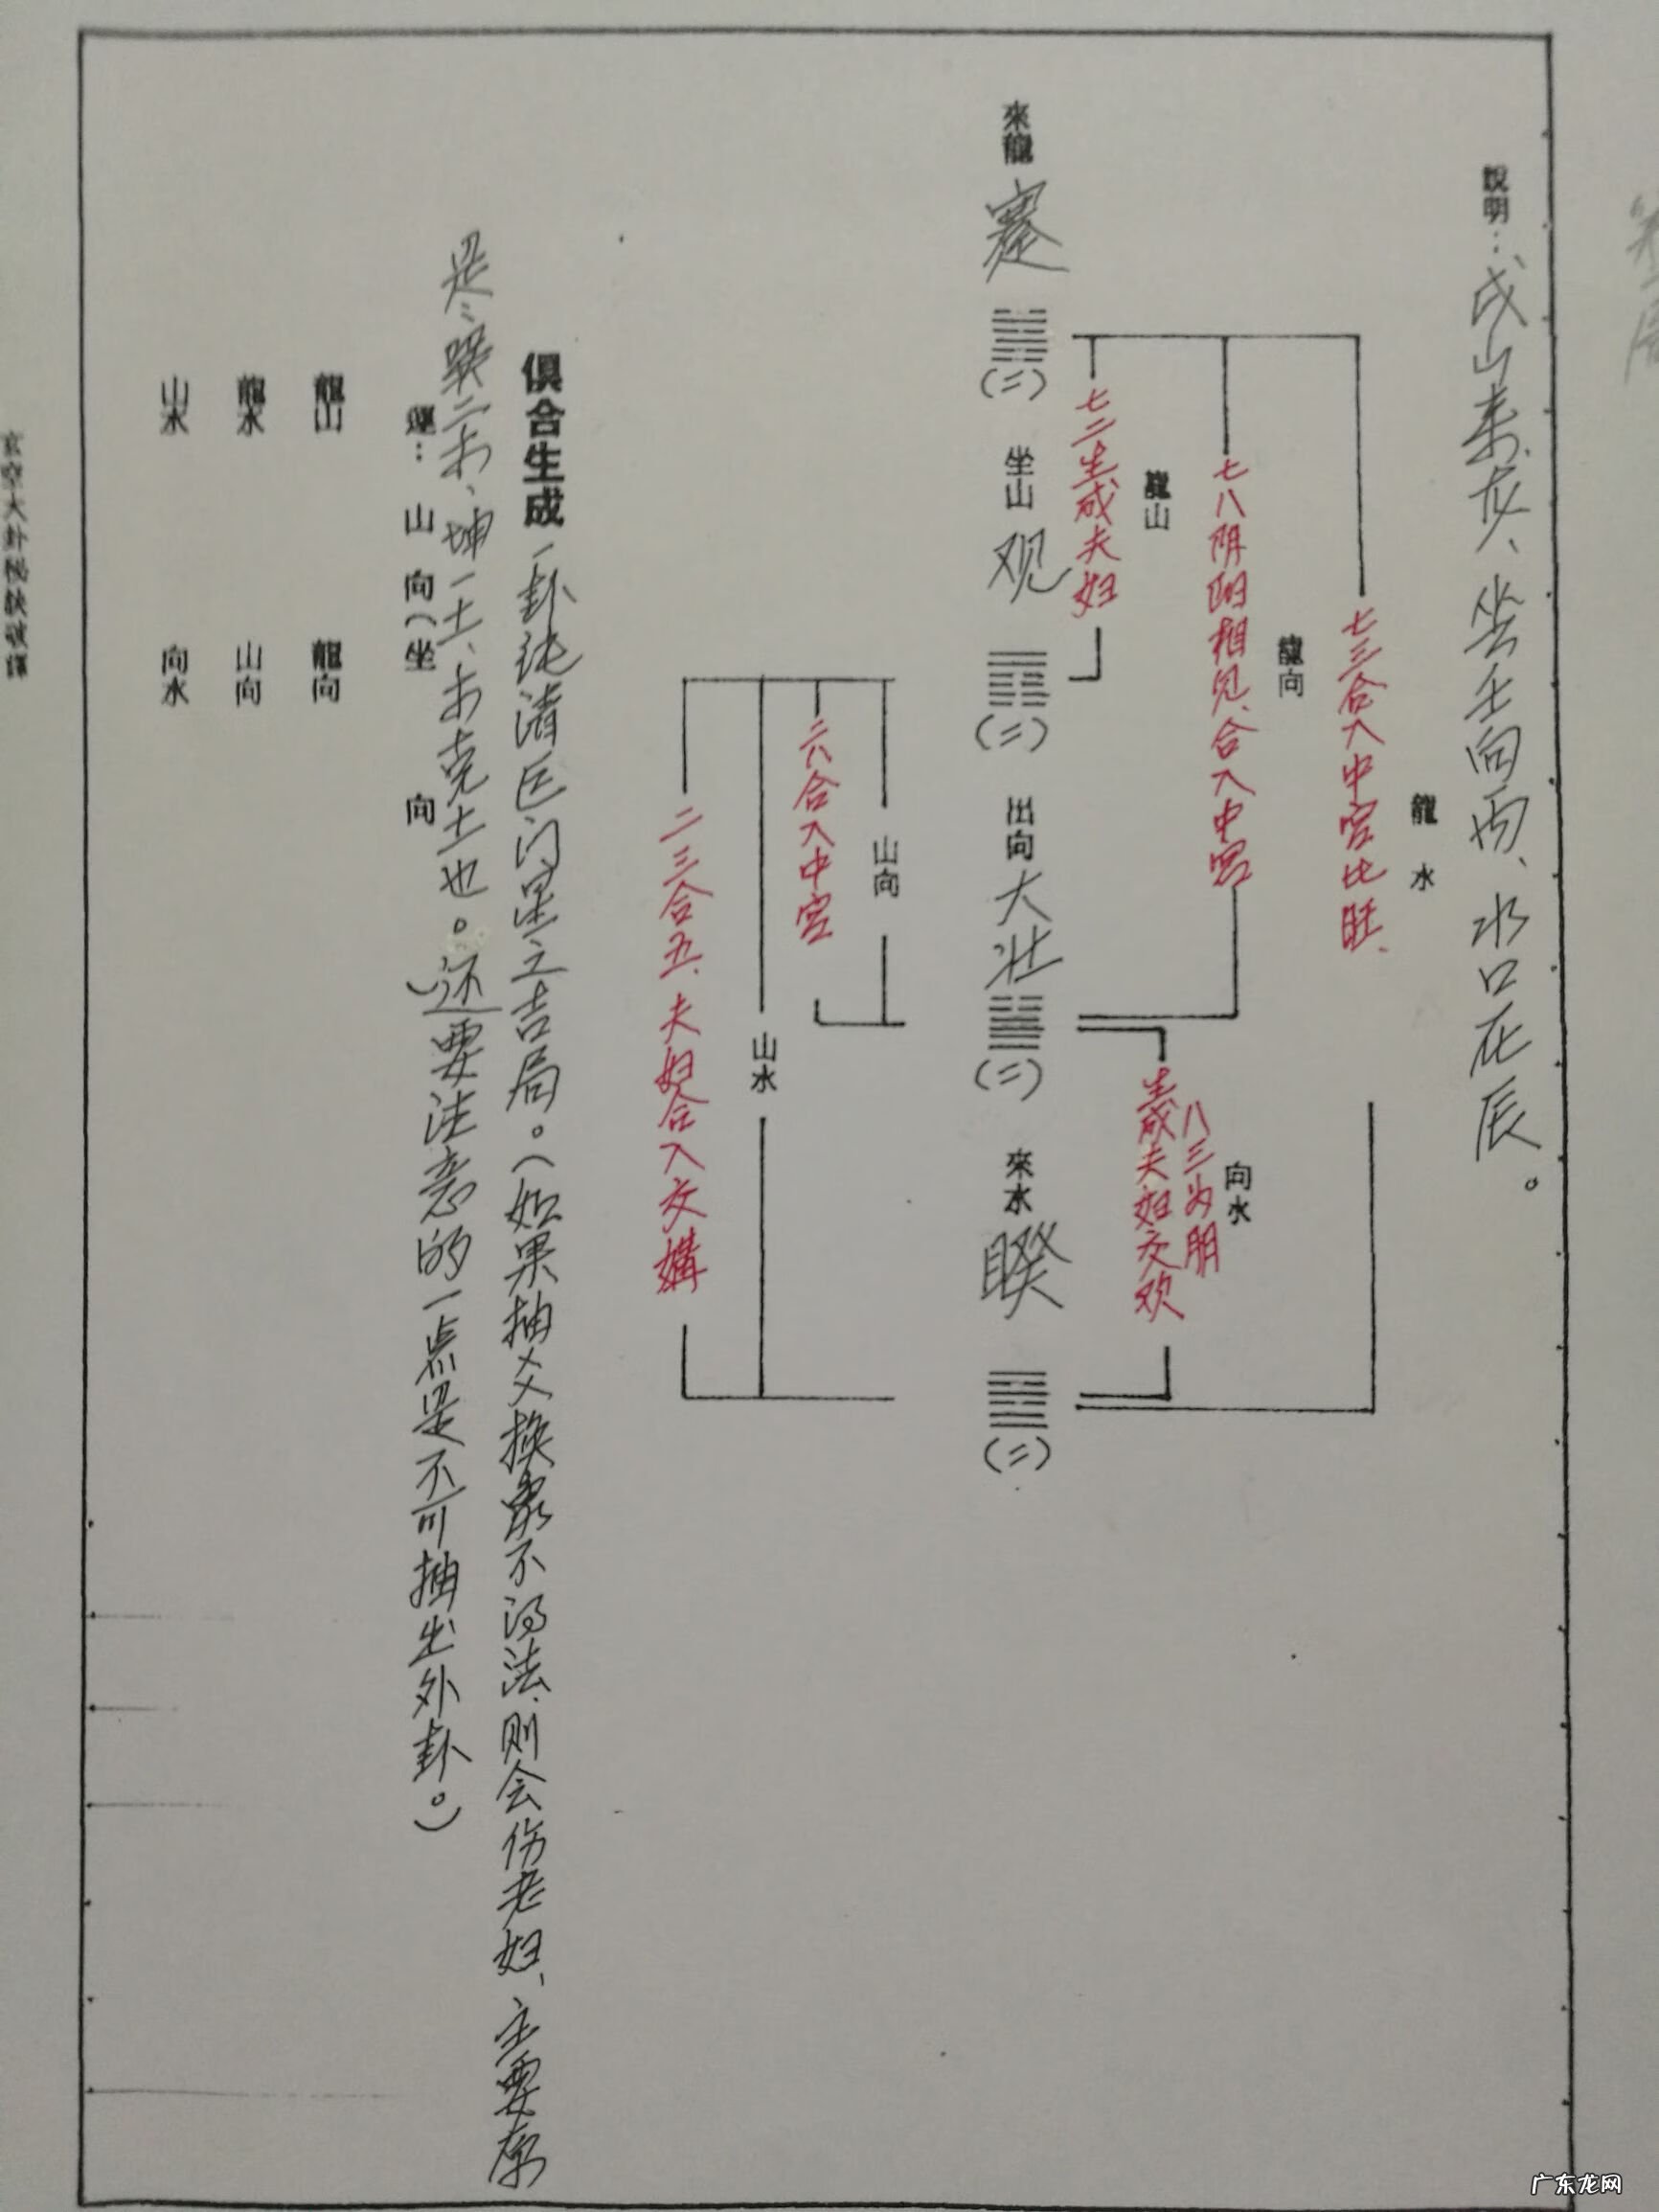 説明：戌山来龙、坐壬向丙、水口在辰。
龍水
七三合入中宫比旺、
龍向
七八阴阳相见、合入中宫
向水
八三为朋
生成夫妇交欢
龍山
七二生成夫妇
來龍 蹇 (二) 坐山 观 (二) 出向 大壮 (二) 來水 睽 (二)
山向
二八合入中宫
山水
二三合五、夫妇合入交媾
俱合生成 一卦纯清巨门星之吉局。(如果抽爻换象不得法、则会伤老妇、主要原
是巽二木、坤一土、木克土也。还要注意的一点是不可抽出外卦。)
運：山向(坐 向
龍山 龍向
龍水 山向
山水 向水
玄空大卦秘訣破譯
广东龙网